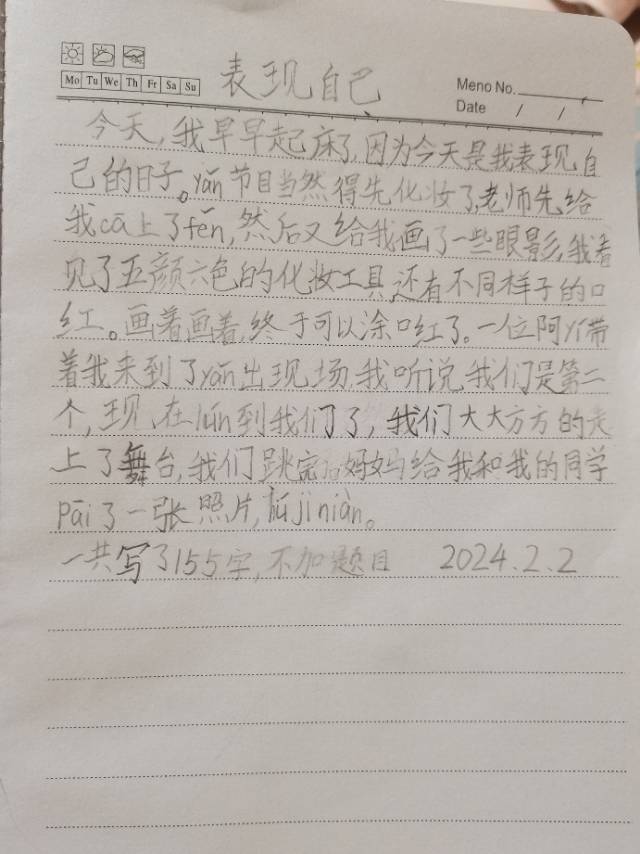 Mo Tu We Th Fr Sa Su
表现自己
Meno No.
Date / /
今天,我早早起床了,因为今天是我表现自
己的日子。yǎn节目当然得先化妆了,老师先给
我cā上了fěn,然后又给我画了一些眼影,我看
见了五颜六色的化妆工具,还有不同样子的口
红。画着画着,终于可以涂口红了。一位阿yí带
着我来到了yǎn出现场,我听说,我们是第二
个,现在lún到我们了,我们大大方方的走
上了舞台,我们跳完后妈妈给我和我的同学
Pāi了一张照片,liú jì niàn。
一共写了155字,不加题目 2024.2.2